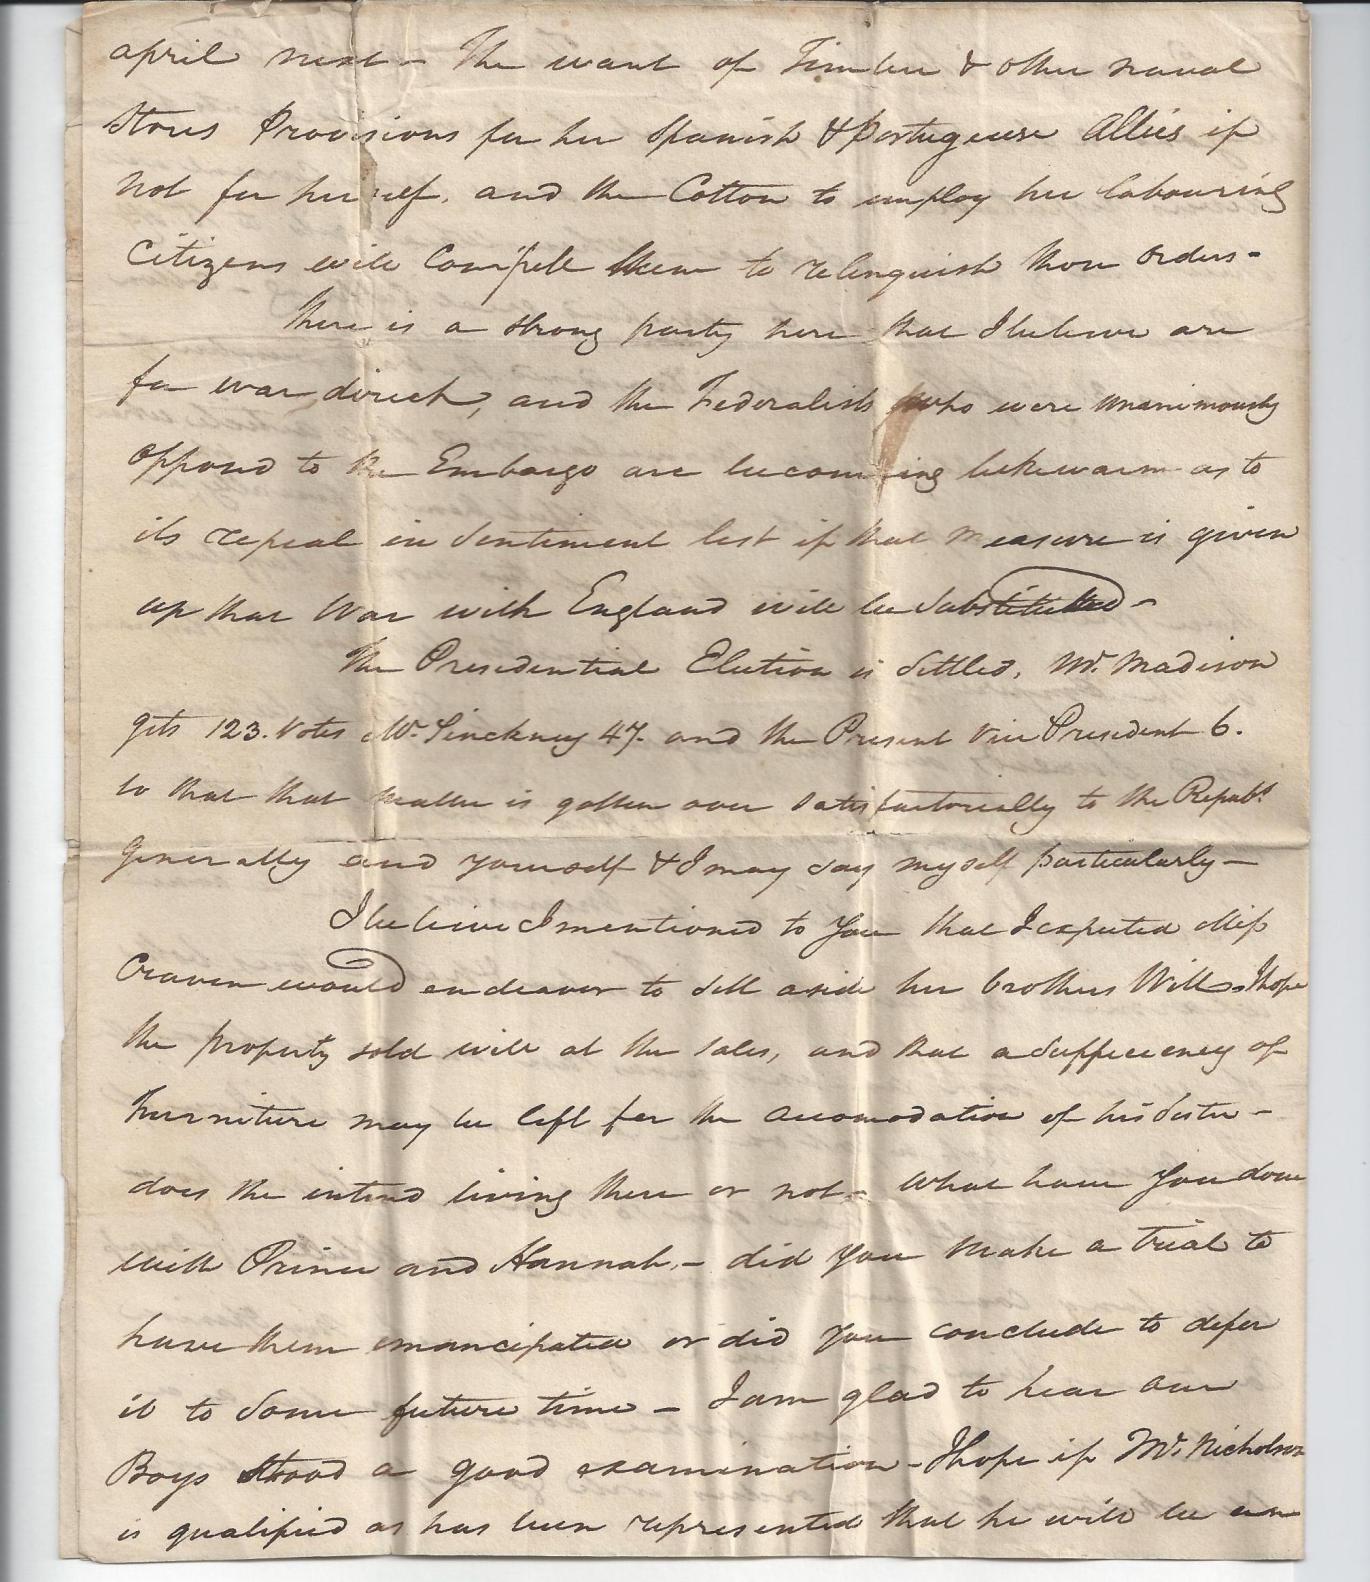 april next - The want of Timber & other naval
Stores Provisions for her Spanish & Portugeuse Allies if
not for herself, and the Cotton to employ her labouring
Citizens will Compell them to relinquish those orders -
There is a strong party here that I believe are
for war direct, and the Federalists who were unanimously
opposed to the Embargo are becomming lukewarm as to
its repeal in Sentiment lest if that measure is given
up that War with England will be Substituted -
The Presidential Election is Settled, Mr. Madison
gets 123. Votes Mr. Pinckney 47. and the Present Vice President 6.
so that that matter is gotten over satisfactorially to the Repubs
generally and yourself & I may say myself particularly -
I believe I mentioned to You that I expected Miss
Craven would endeavor to Sett aside her brothers Will. I hope
the property sold well at the Sales, and that a Suffeciency of
furniture may be left for the accomodation of his Sister -
does she intend living there or not - What have You done
with Prince and Hannah, - did You make a trial to
have them emancipated or did You conclude to defer
it to Some future time - I am glad to hear our
Boys Stood a good examination - I hope if Mr. Nicholson
is qualified as has been represented that he will be an